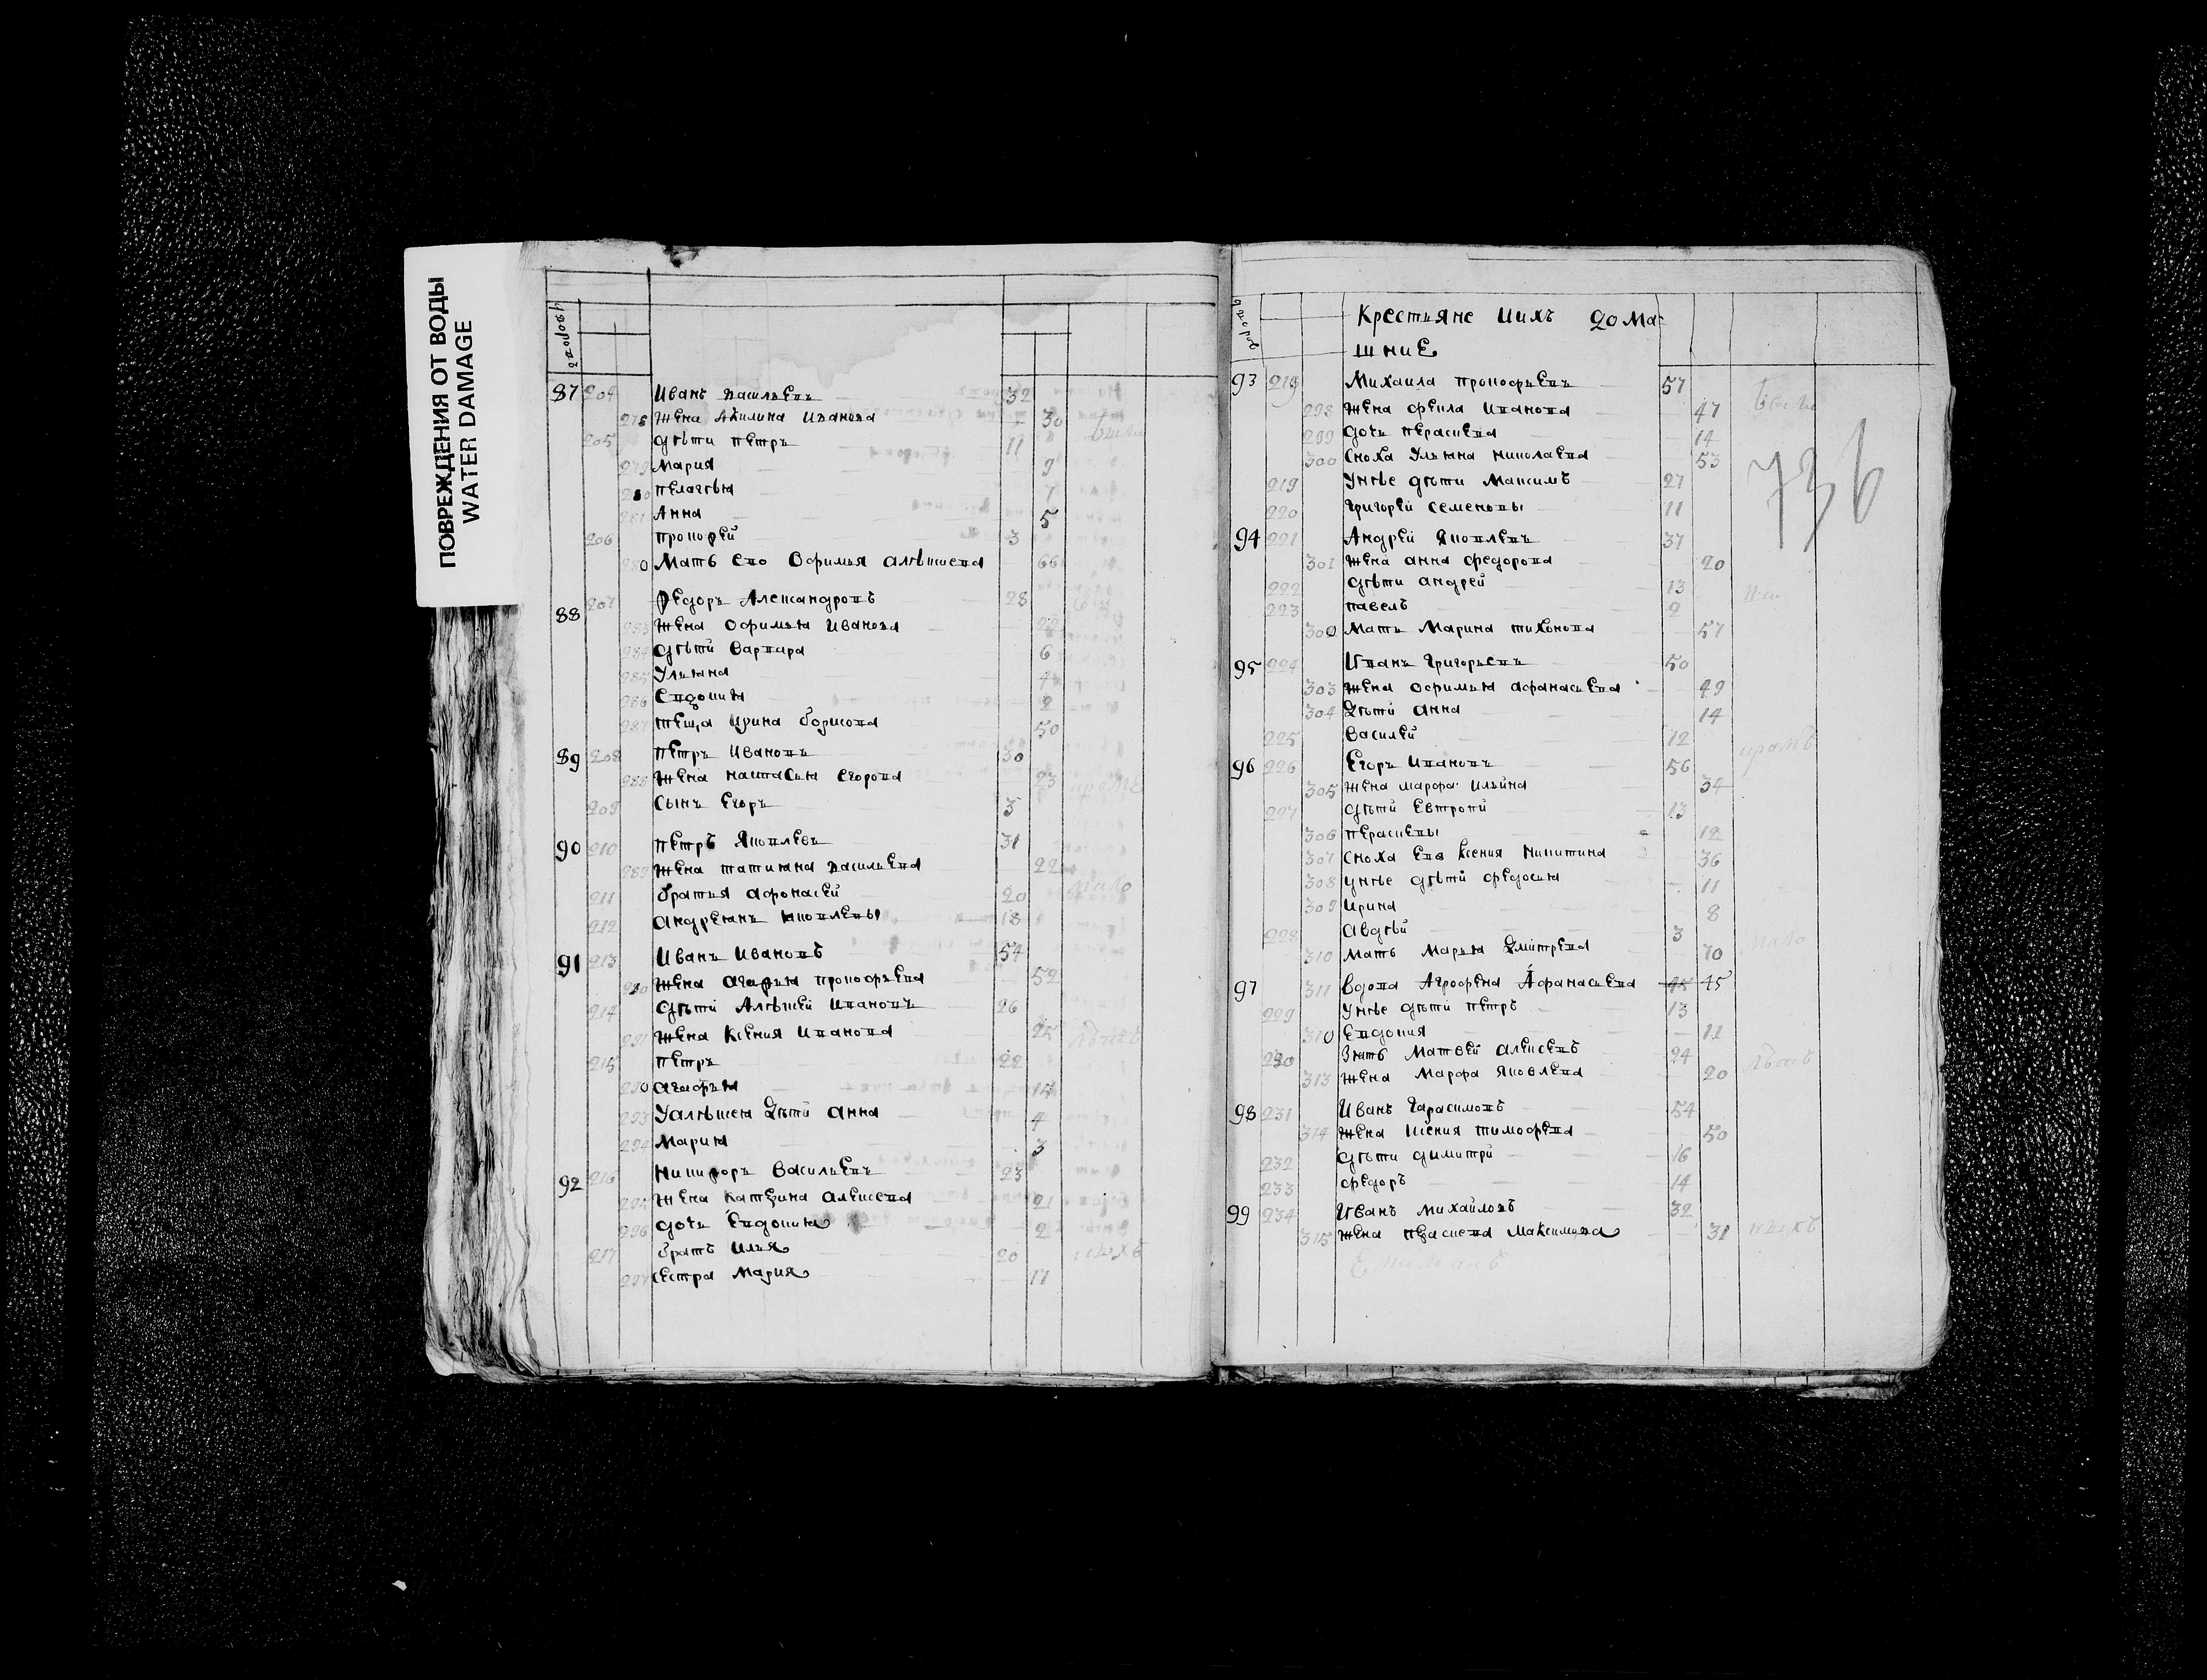 ПОВРЕЖДЕНИЯ ОТ ВОДЫ
WATER DAMAGE
87 204 Иванъ Васильевъ 32
278 Жена Акилина Иванова 30
205 дѣти Петръ 11
279 Мария 9
280 Пелагѣя 7
281 Анна 5
206 Прокофей 3
Мать ево Офимья Алѣксиева 66
88 207 Федоръ Александровъ 28
283 Жена Офимья Иванова
284 дѣти Варвара 6
285 Ульяна 4
286 Евдокия 2
287 теща Ирина Борисова 50
89 208 Петръ Ивановъ 30
288 Жена Настасья Егорова 23
209 Сынъ Егоръ 3
90 210 Петръ Яковлевъ 31
289 Жена Татияна Васильева 22
211 братья Афонасей 20
212 Андреянъ Яковлевы 18
91 213 Иванъ Ивановъ 54
290 Жена Агафья Прокофьева 52
214 дѣти Алѣксей Ивановъ 26
291 Жена Ксения Иванова 25
215 Петръ 22
Агафья
293 У Алѣксея дѣти Анна 4
294 Марья 3
92 216 Никифоръ Васильевъ 23
295 Жена Катерина Алексеева 21
296 дочь Евдокия 2
217 братъ Илья 20
297 сестра Мария 17
дворовъ Крестьяне ихъ дома-
шние
93 219 Михаила Прокофьевъ 57
298 Жена Фекла Иванова 47
299 дочь Пераскева 14
300 Сноха Ульяна Николаева 53
219 Унѣе дѣти Максимъ 27
220 Григорей Семеновы 11
94 221 Андрей Яковлевъ 37
301 Жена Анна Федорова 20
222 дѣти Андрей 13
223 Павелъ 9
300 Мать Марина Тихонова 57
95 224 Иванъ Григорьевъ 50
303 Жена Офимья Афанасьева 49
304 дѣти Анна 14
225 Василей 12
96 226 Егоръ Ивановъ 56
305 Жена Марфа Ильина 34
227 дѣти Евтропи 13
306 Пераскевы 12
307 Сноха Ева Ксения Никитина 36
308 унѣе дѣти Федосья 11
309 Ирина 8
228 Авдѣй 3
310 Мать Марья Дмитрева 70
97 311 Вдова Агрофена Афанасьева 45
229 Унѣе дѣти Петръ 13
310 Евдокия 11
230 Зять Матвей Алексеевъ 24
313 Жена Марфа Яковлева 20
98 231 Иванъ Гарасимовъ 54
314 Жена Ксения Тимофева 50
232 дѣти Димитрй 16
233 Федоръ 14
99 234 Иванъ Михайловъ 32
315 Жена Праскева Максимова 31